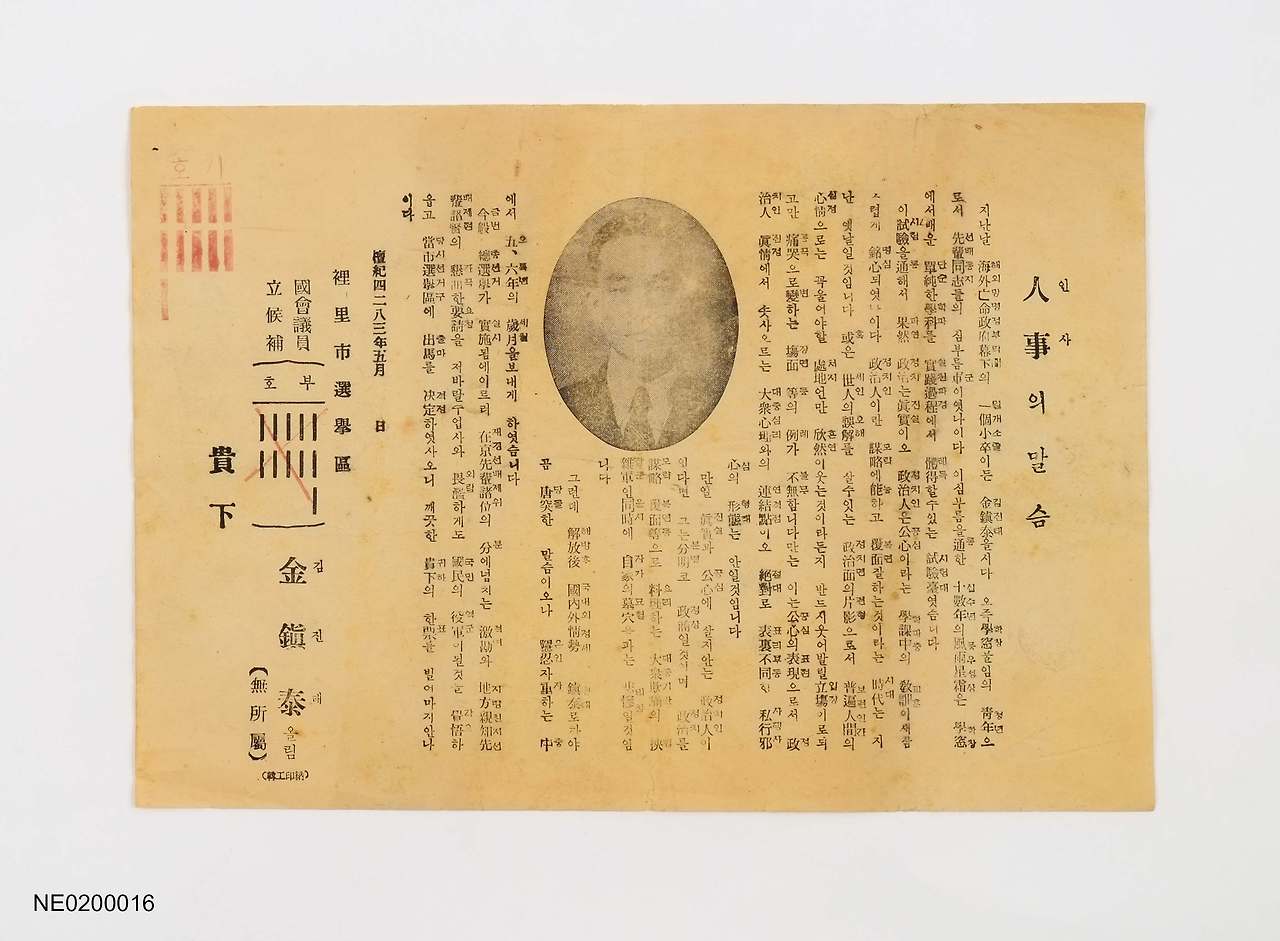 人事의 말슴
인사
지난날 海外亡命政府幕下의 一個小卒이든 金鎭泰올시다 오즉學窓붙임의 靑年으
로서 先輩同志들의 심부름軍이엿나이다 이심부름을通한 十數年의風雨星霜은 學窓
에서배운 單純한學科를 實踐過程에서 體得할수있는 試驗臺엿슴니다
이試驗을通해서 果然 政治는眞實이오 政治人은公心이라는 學課中의 敎訓이새삼
스럽게 銘心되엿나이다 政治人이란 謀略에能하고 覆面잘하는것이라는 時代는 지
난 옛날일것입니다 或은 世人의誤解를 살수잇는 政治面의片影으로서 普遍人間의
心情으로는 꼭울어야할 處地언만 欣然이웃는것이라든지 반드시웃어발릴立場이로되
고만 痛哭으로變하는 場面 等의 例가 不無합니다만는 이는公心의表現으로서 政
治人 眞情에서 솟사오르는 大衆心理와의 連結點이오 絕對로 表裏不同한 私行邪
心의 形態는 안일것입니다
만일 眞實과 公心에 살지안는 政治人이
인다면 그는分明코 政商일것시며 政治를
謀略 覆面等으로 料理하는 大衆欺瞞의 挾
雜軍인同時에 自家의墓穴을파는 悲慘일것임
니다
그런데 解放後 國內外情勢 鎭泰로하야
곰 唐突한 말슴이오나 隱忍自重하는 中
에서 五、六年의 歲月을보내게 하엿슴니다
今般 總選擧가 實施됨에이르러 在京先輩諸位의 分에넘치는 激勵와 地方親知先
輩諸賢의 懇曲한要請을 저바릴수업사와 畏濫하게도 國民의 役軍이될것을 覺悟하
옵고 當市選擧區에 出馬를 決定하엿사오니 깨끗한 貴下의 한票를 빌어마지안나
이다
檀紀四二八三年五月 日
裡里市選擧區
國會議員
立候補
부호
金鎭泰 올림
김진태
(無所屬)
(韓工印納)
貴下
기호
NE0200016